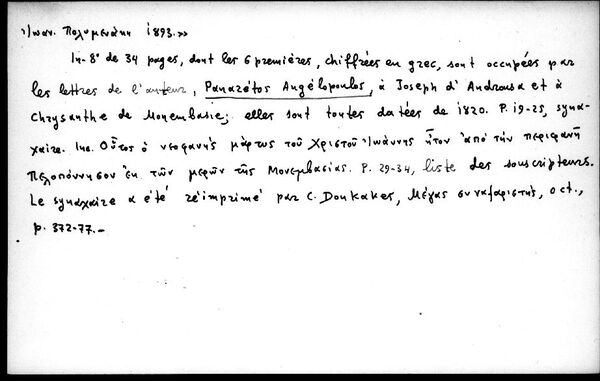 Ἰωαν. Πολυμενάκη 1893.»
In-8° de 34 pages, dont les 6 premières, chiffrées en grec, sont occupées par
les lettres de l'auteur, Panarétos Angélopoulos, à Joseph d'Androusa et à
Chrysanthe de Monembasie; elles sont toutes datées de 1820. P. 19-25, syna-
xaire. Inc. Οὗτος ὁ νεοφανὴς μάρτυς τοῦ Χριστοῦ Ἰωάννης ἦτον ἀπὸ τὴν περιφανῆ
Πελοπόννησον ἐκ τῶν μερῶν τῆς Μονεμβασίας. P. 29-34, liste des souscripteurs.
Le synaxaire a été réimprimé par C. Doukakes, Μέγας συναξαριστής, oct.,
p. 372-77.-